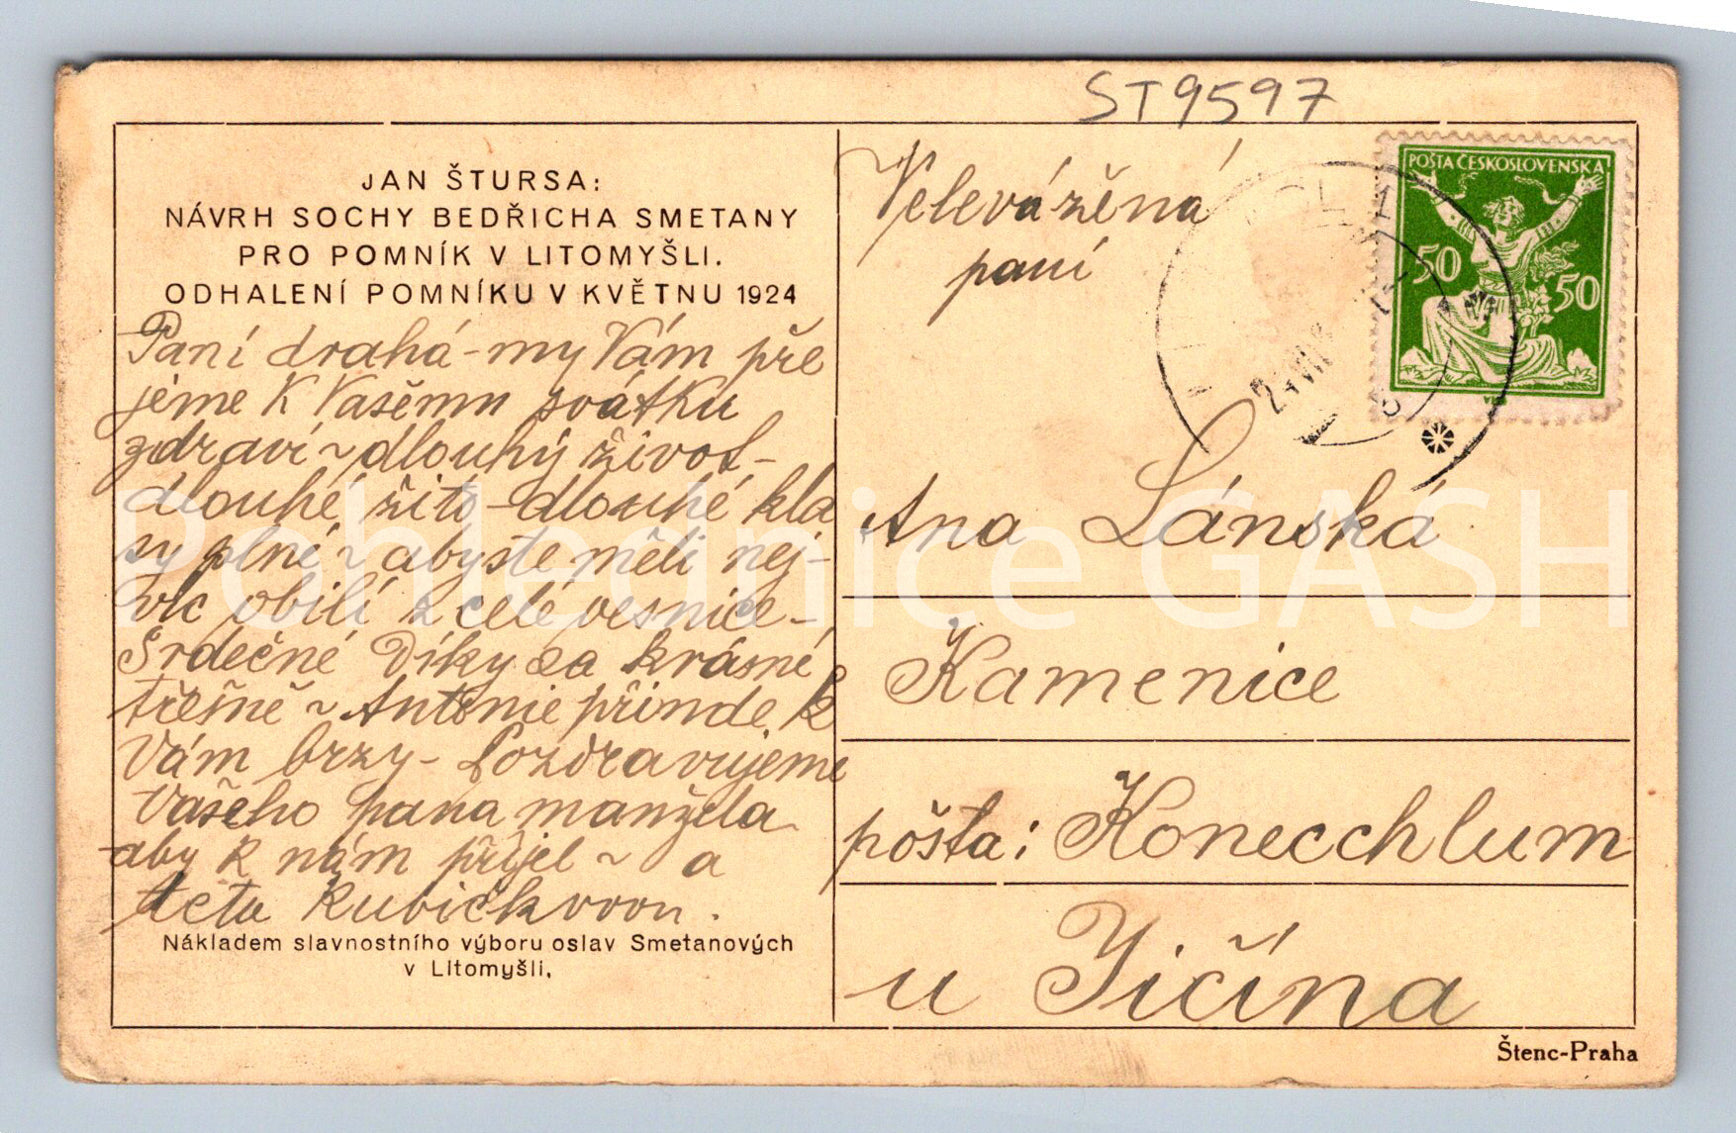 ST9597
JAN ŠTURSA:
NÁVRH SOCHY BEDŘICHA SMETANY
PRO POMNÍK V LITOMYŠLI.
ODHALENÍ POMNÍKU V KVĚTNU 1924
Paní drahá - my Vám pře
jeme K Vašěmu svátku
zdraví ~ dlouhý život -
dlouhé žito - dlouhé kla
sy plné ~ abyste měli nej-
víc obilí z celé vesnice -
Srdečné Díky za krásné
třešně ~ Antonie přinde k
Vám brzy - Pozdravujeme
Vašeho pana manžela
aby k nám přijel ~ a
teta Kubičkovou.
Nákladem slavnostního výboru oslav Smetanových
v Litomyšli,
Velevážěná
paní
POŠTA ČESKOSLOVENSKÁ
50 50
Ana Lánská
Kamenice
pošta: Konecchlum
u Jičína
Štenc-Praha
Pohlednice GASH